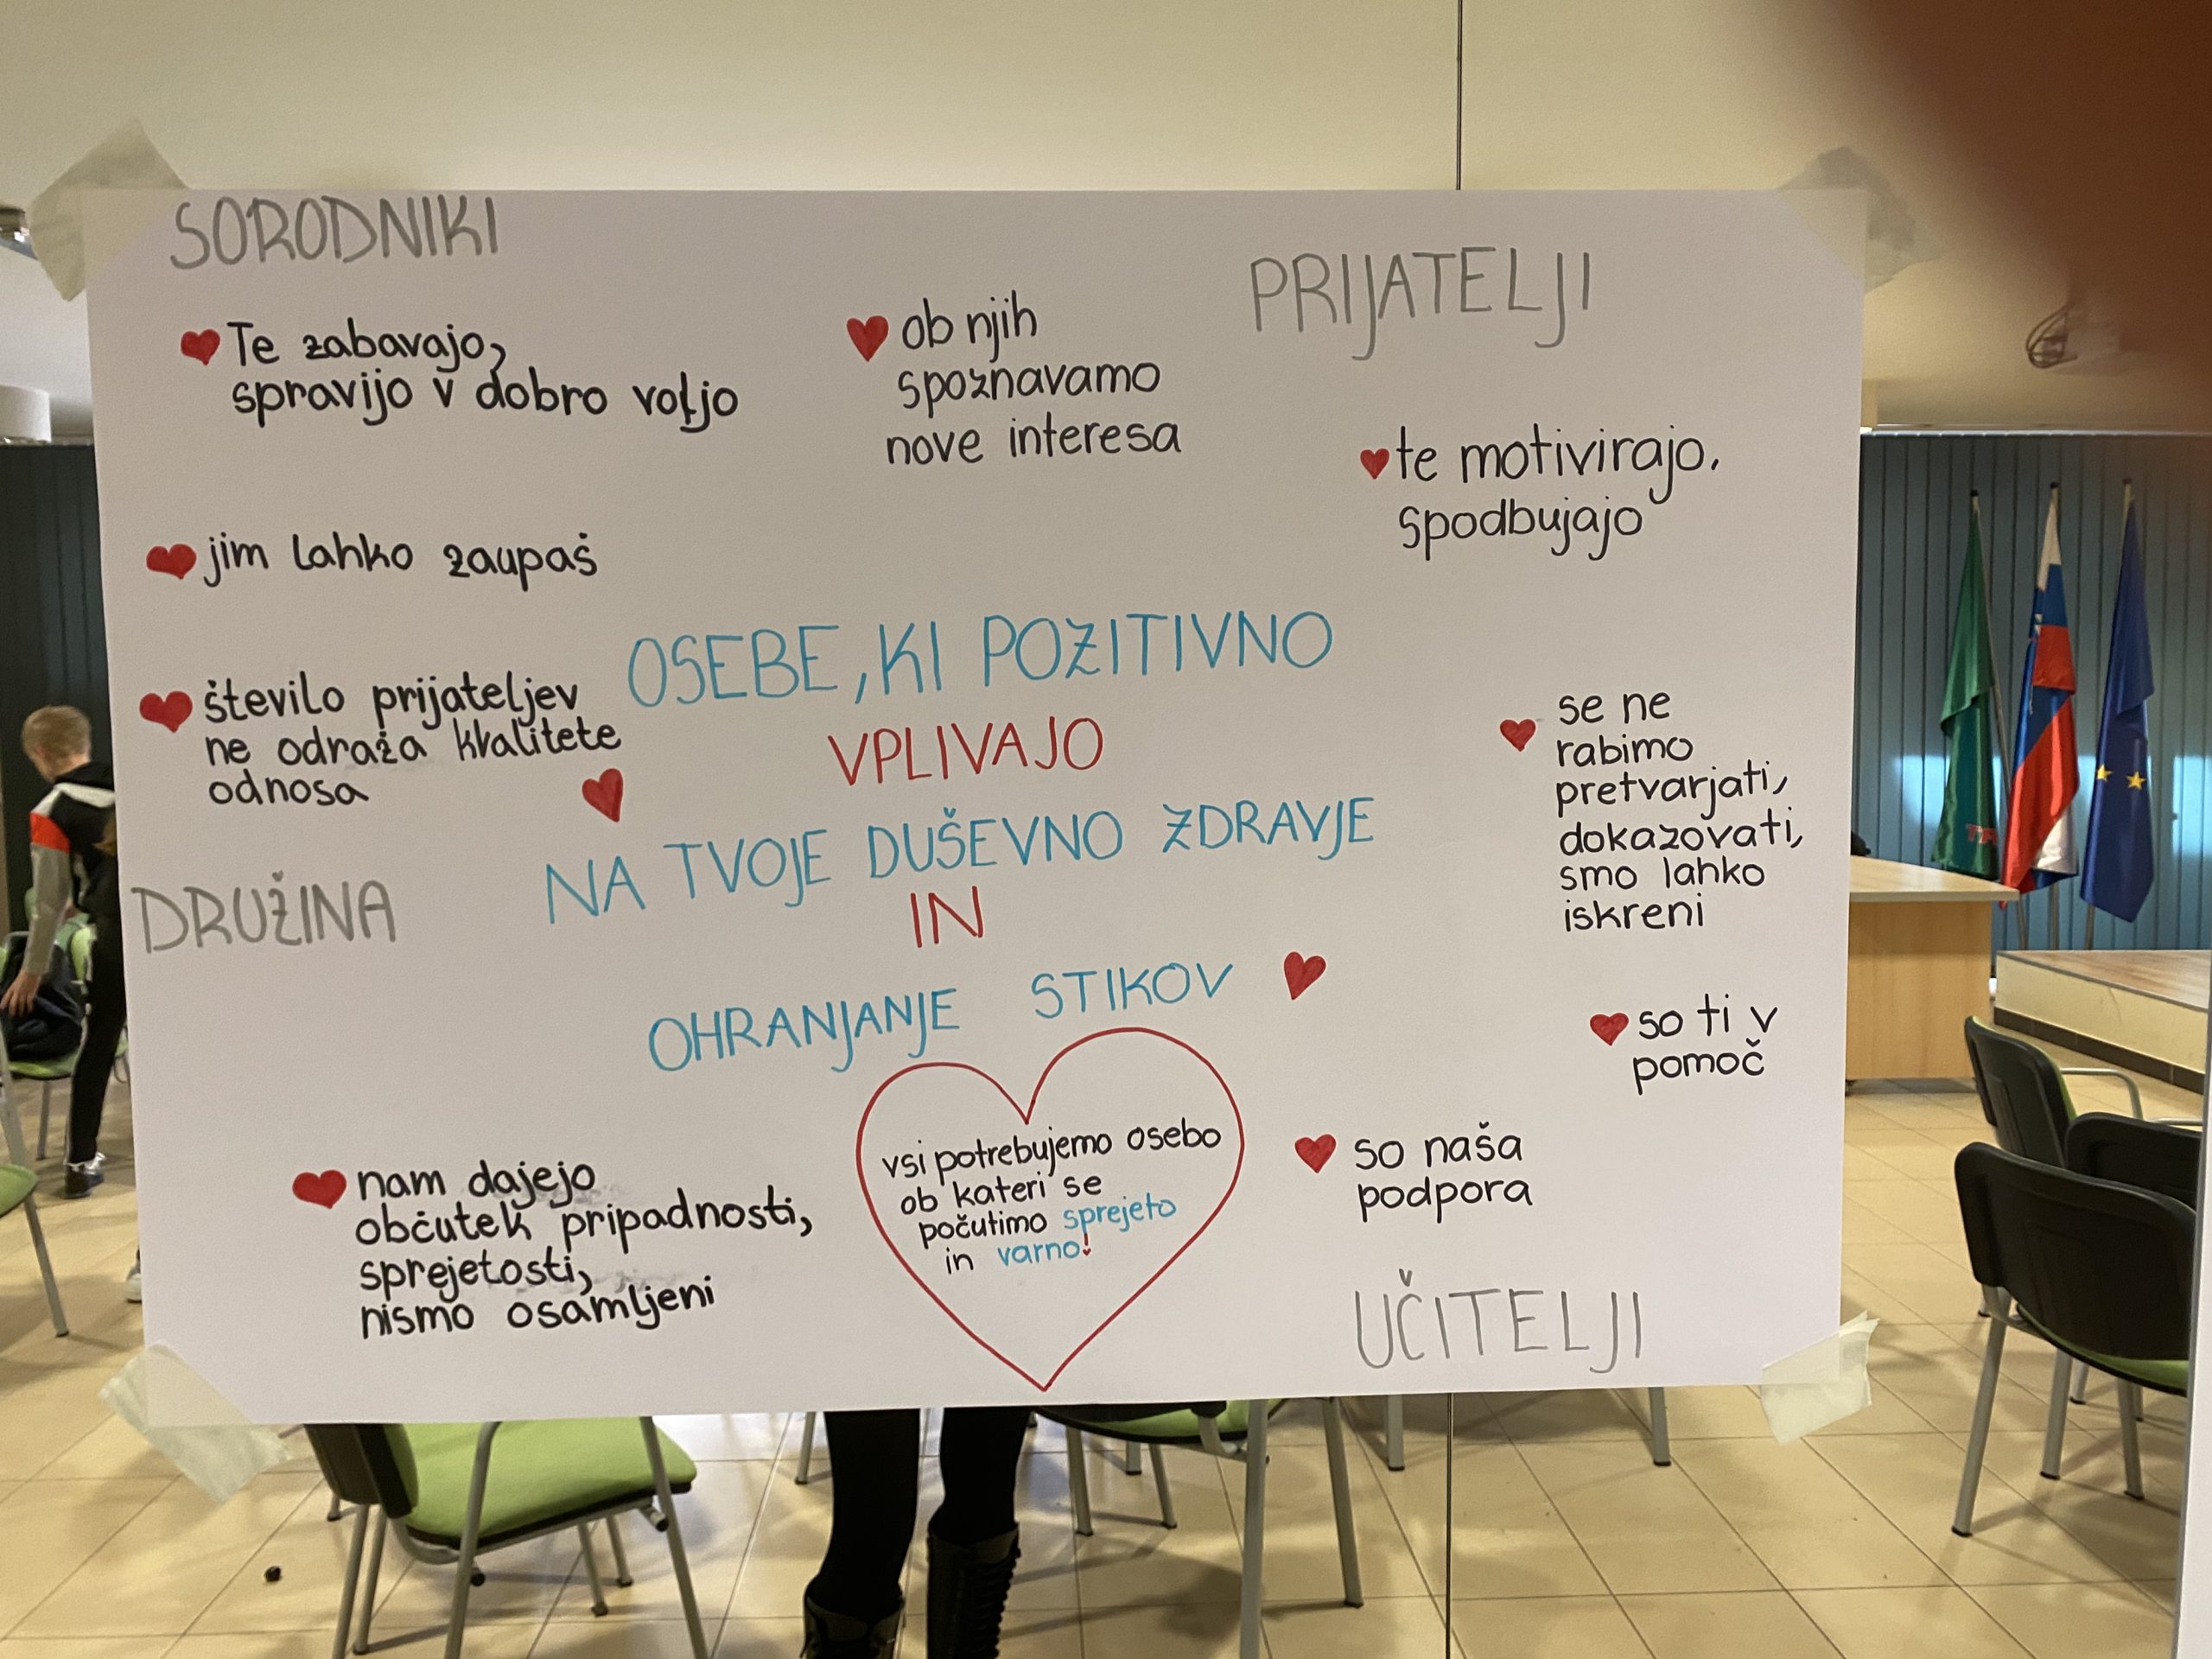 SORODNIKI
Te zabavajo,
spravijo v dobro voljo
ob njih
spoznavamo
nove interesa
PRIJATELJI
te motivirajo.
spodbujajo
jim lahko zaupaš
število prijateljev
ne odraža kvalitete
odnosa
OSEBE, KI POZITIVNO
VPLIVAJO
NA TVOJE DUŠEVNO ZDRAVJE
IN
OHRANJANJE STIKOV
se ne
rabimo
pretvarjati,
dokazovati,
smo lahko
iskreni
DRUŽINA
so ti v
pomoč
nam dajejo
občutek pripadnosti,
sprejetosti,
nismo osamljeni
vsi potrebujemo osebo
ob kateri se
počutimo sprejeto
in varno!
so naša
podpora
UČITELJI